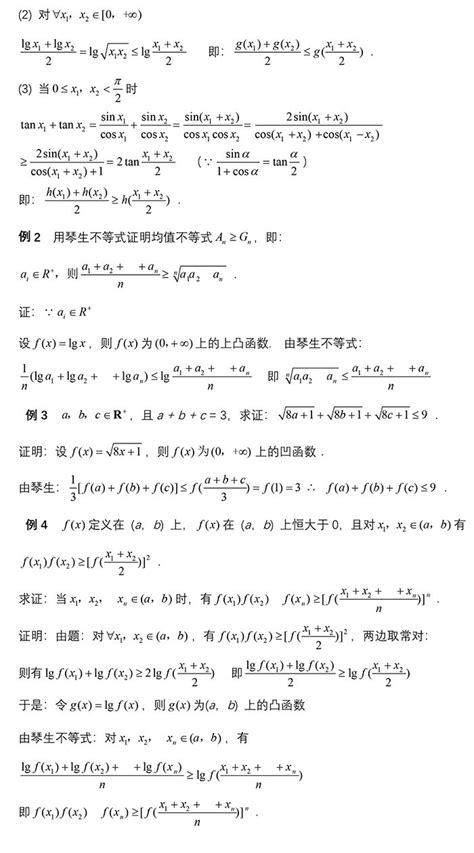 (2) 对∀x₁，x₂∈[0，+∞)
(lg x₁+lg x₂)/2=lg√(x₁x₂)≤lg (x₁+x₂)/2 即：(g(x₁)+g(x₂))/2≤g((x₁+x₂)/2)．
(3) 当0≤x₁，x₂<π/2时
tan x₁+tan x₂=sin x₁/cos x₁+sin x₂/cos x₂=sin(x₁+x₂)/(cos x₁ cos x₂)=2sin(x₁+x₂)/(cos(x₁+x₂)+cos(x₁−x₂))
≥2sin(x₁+x₂)/(cos(x₁+x₂)+1)=2tan (x₁+x₂)/2 （∵ sin α/(1+cos α)=tan α/2）
即：(h(x₁)+h(x₂))/2≥h((x₁+x₂)/2)．
例 2 用琴生不等式证明均值不等式 Aₙ≥Gₙ，即：
aᵢ∈R⁺，则 (a₁+a₂+ +aₙ)/n≥ⁿ√(a₁a₂ aₙ)．
证：∵ aᵢ∈R⁺
设 f(x)=lg x，则 f(x) 为 (0，+∞) 上的上凸函数． 由琴生不等式：
1/n(lg a₁+lg a₂+ +lg aₙ)≤lg (a₁+a₂+ +aₙ)/n 即 ⁿ√(a₁a₂ aₙ)≤(a₁+a₂+ +aₙ)/n
例 3 a，b，c∈R⁺，且 a + b + c = 3，求证：√(8a+1)+√(8b+1)+√(8c+1)≤9．
证明：设 f(x)=√(8x+1)，则 f(x) 为 (0，+∞) 上的凹函数．
由琴生：1/3[f(a)+f(b)+f(c)]≤f((a+b+c)/3)=f(1)=3 ∴ f(a)+f(b)+f(c)≤9．
例 4 f(x) 定义在 (a，b) 上，f(x) 在 (a，b) 上恒大于 0，且对 x₁，x₂∈(a，b) 有
f(x₁)f(x₂)≥[f((x₁+x₂)/2)]²．
求证：当 x₁，x₂， xₙ∈(a，b) 时，有 f(x₁)f(x₂) f(xₙ)≥[f((x₁+x₂+ +xₙ)/n)]ⁿ．
证明：由题：对∀x₁，x₂∈(a，b)，有 f(x₁)f(x₂)≥[f((x₁+x₂)/2)]²，两边取常对：
则有 lg f(x₁)+lg f(x₂)≥2lg f((x₁+x₂)/2) 即 (lg f(x₁)+lg f(x₂))/2≥lg f((x₁+x₂)/2)
于是：令 g(x)=lg f(x)，则 g(x) 为(a，b) 上的凸函数
由琴生不等式：对 x₁，x₂， xₙ∈(a，b)，有
(lg f(x₁)+lg f(x₂)+ +lg f(xₙ))/n≥lg f((x₁+x₂+ +xₙ)/n)
即 f(x₁)f(x₂) f(xₙ)≥[f((x₁+x₂+ +xₙ)/n)]ⁿ．